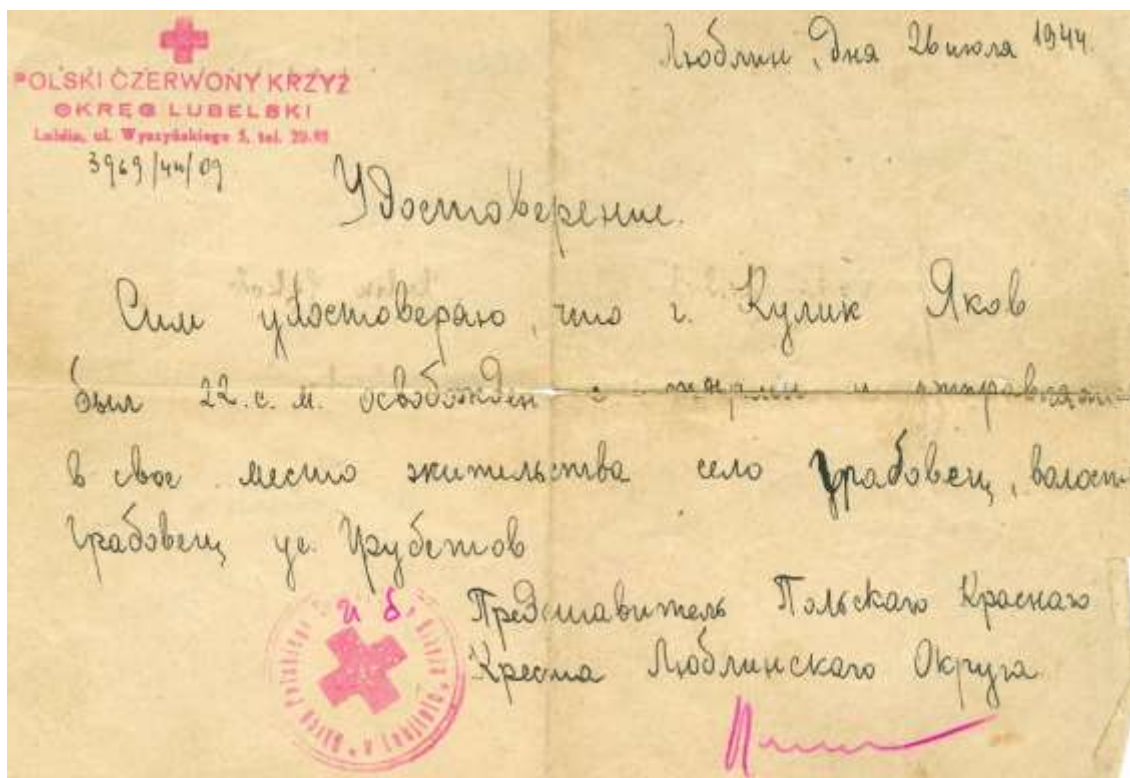 POLSKI CZERWONY KRZYŻ
OKRĘG LUBELSKI
Lublin, ul. Wyszyńskiego 5, tel.
3969/44/09
Люблин, дня 26 июля 1944.
Удостоверение.
Сим удостоверяю, что г. Кулик Яков
был 22. с. м. освобожден с тюрьмы и отправляется
в свое место жительства село Грабовец, волость
Грабовец уе. Грубешов
Представитель Польскаго Краснаго
Креста Люблинскаго Округа